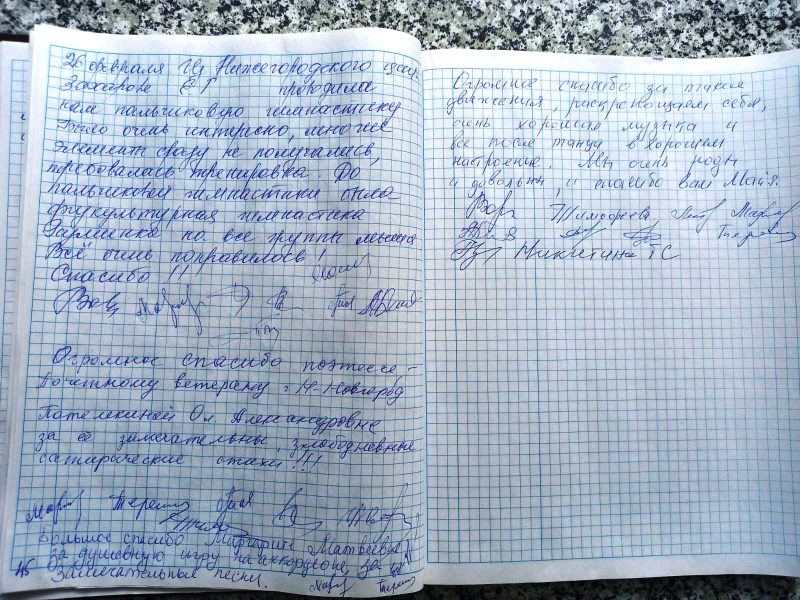 26 февраля Нижегородского
Захарова Е Г проводила
нам пальчиковую гимнастику
Было очень интересно, многие
элементы сразу не получались,
требовалась тренировка. До
пальчиковой гимнастики была
физкультурная гимнастика
на все группы мышц
Всё очень понравилось!
Спасибо !!
Огромное спасибо поэтессе -
Почётному ветерану г Н-Новгород
Ол. Александровне
за её замечательны, злободневные
сатирические стихи!!!
Большое спасибо Маргарите Матвеевне
за душевную игру на аккордеоне за
Замечательные песни.
45
Огромное спасибо за такие
движения, раскрепощаем себя,
очень хорошая музыка и
все после танца в хорошем
настроение. Мы очень рады
и довольны, и спасибо вам Майя.
Тимофеева
Никитина ТС